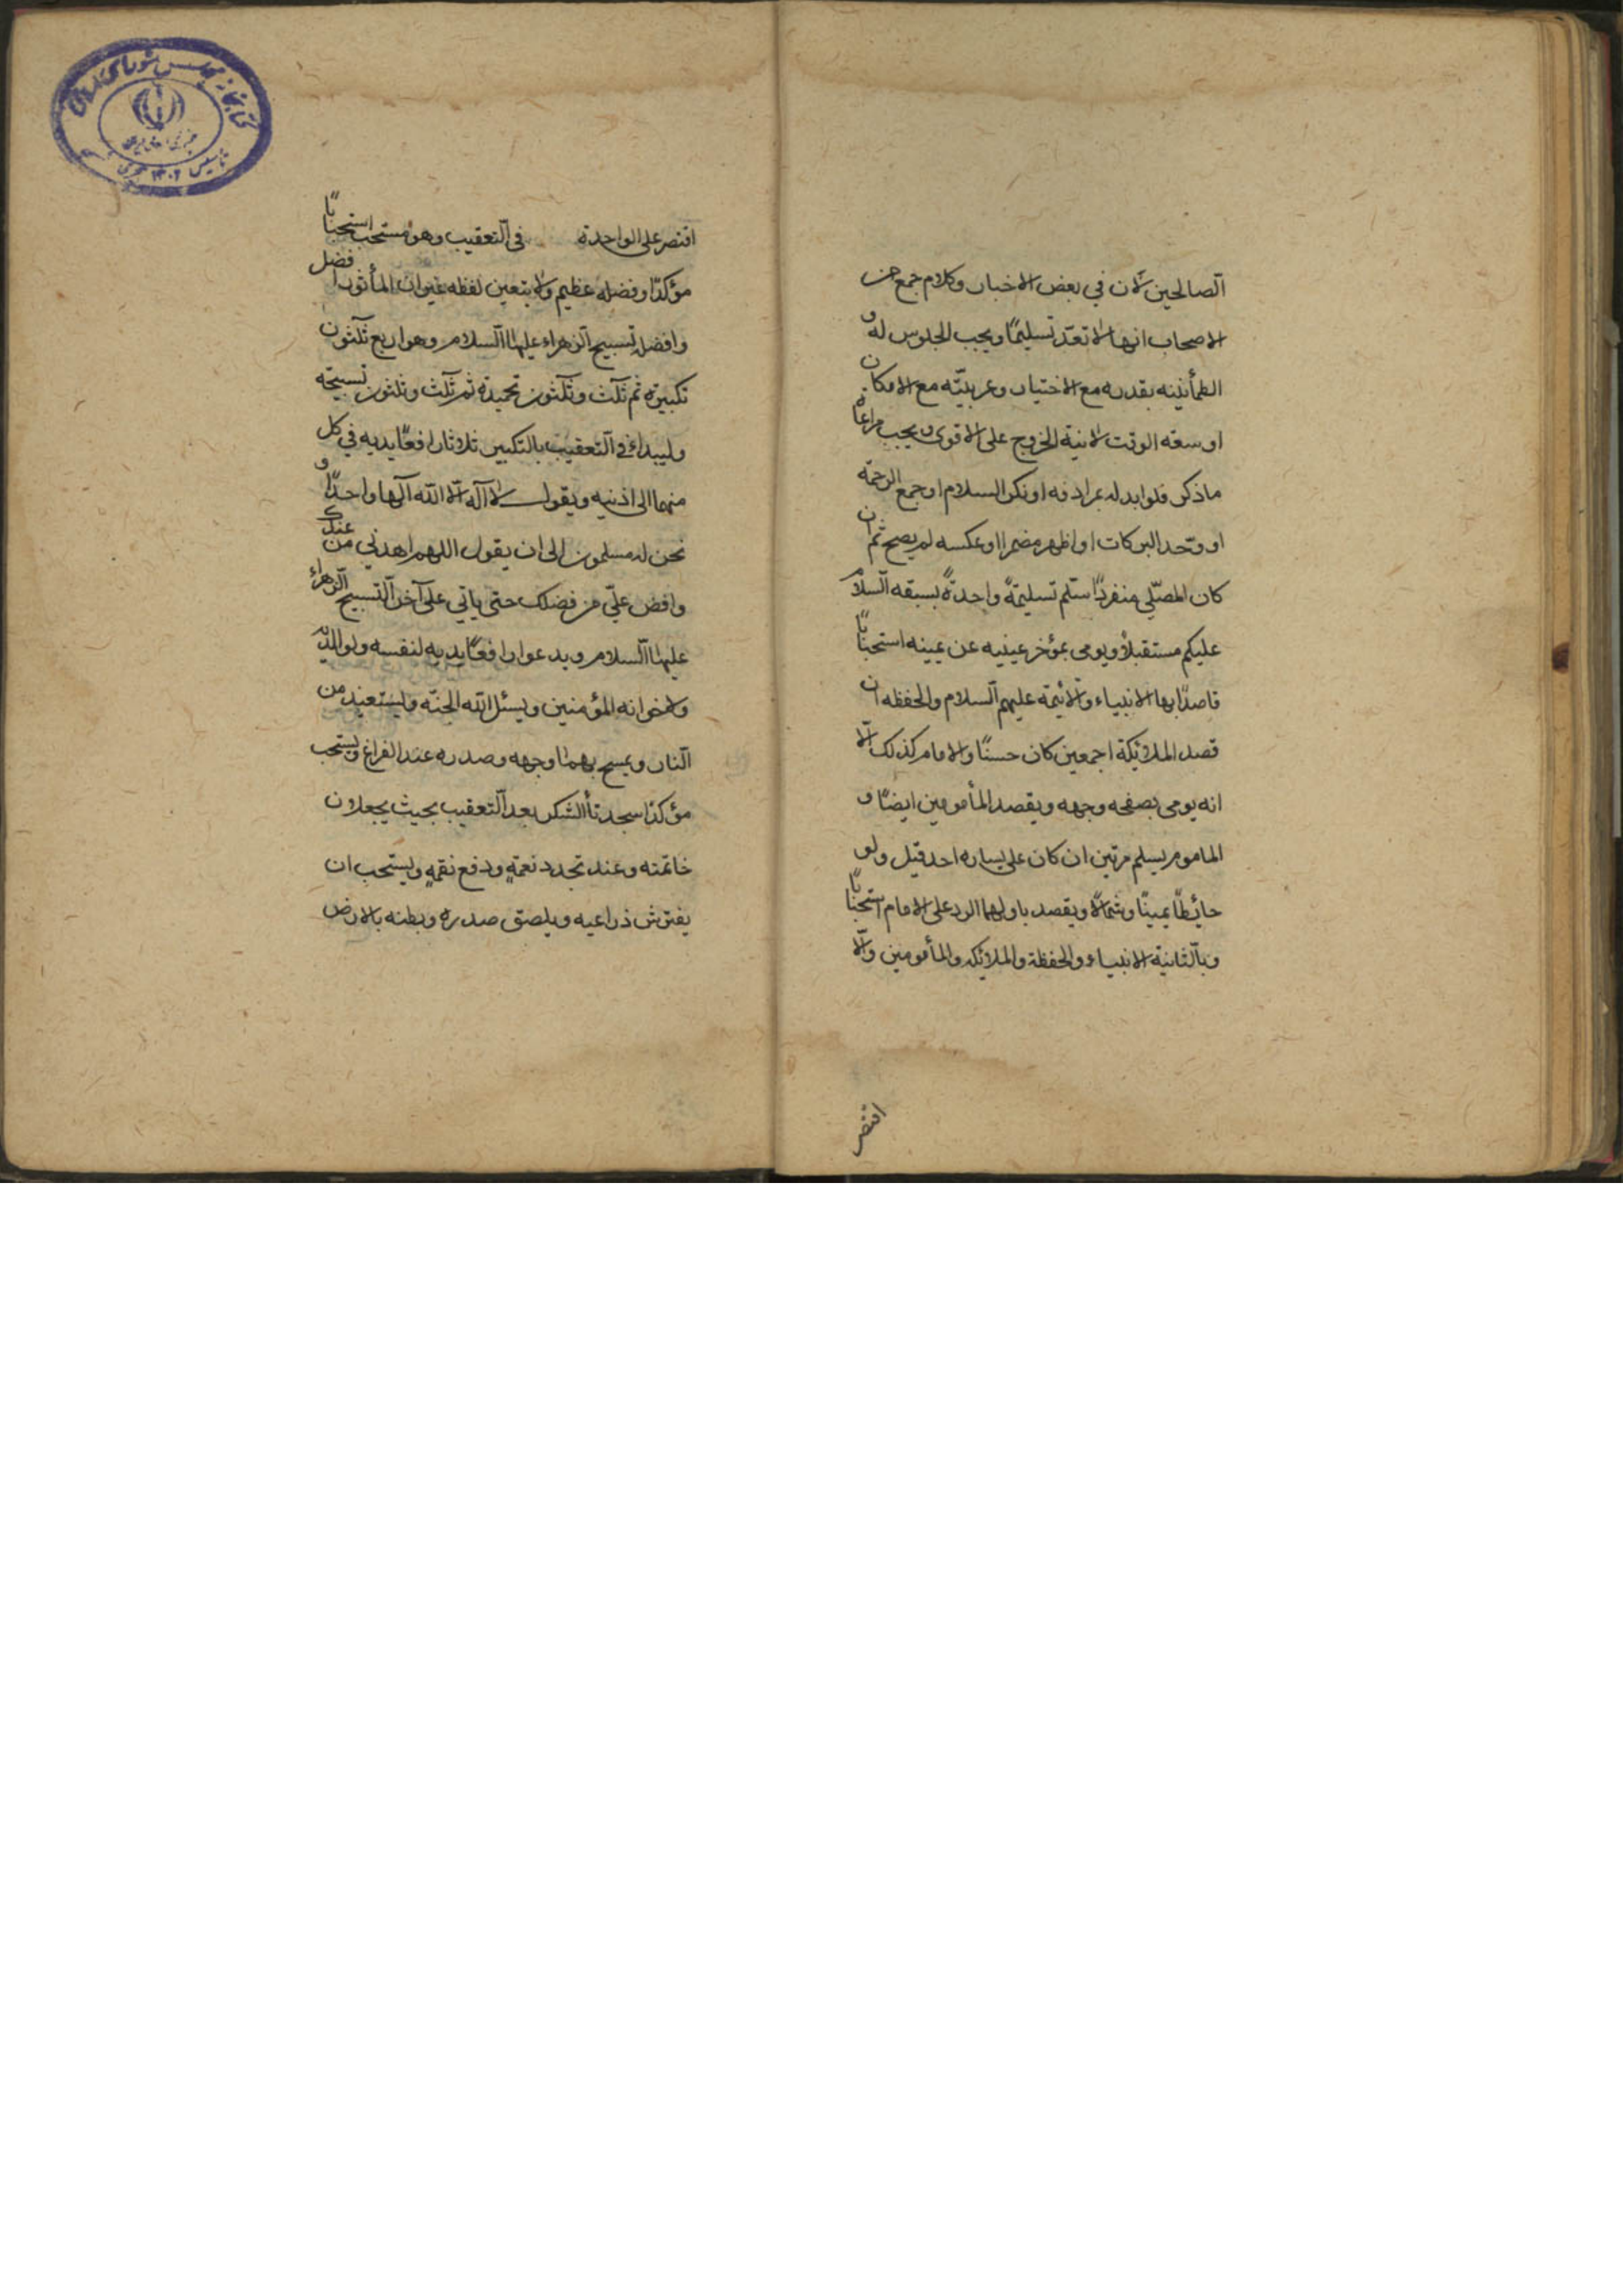 الصالحين لان في بعض الاخبار وكلام جمع من
الاصحاب انها لا تعدّ تسليمًا ويجب الجلوس له و
الطمأنينه بقدره مع الاختيار وعربيّته مع الامكان
او سعة الوقت لا نية الخروج على الاقوى ويجب مراعاة
ما ذكر فلو ابدله بمرادفه او نكر السلام او جمع الرحمة
او وحّد البركات او اظهر مضمرا او عكسه لم يصح ثم ان
كان المصلّي منفردًا سلّم تسليمةً واحدةً بسبقه السلام
عليكم مستقبلاً ويومى بمؤخر عينيه عن يمينه استحبابًا
قاصدًا بها الانبياء والائمة عليهم السلام والحفظه ان
قصد الملائكة اجمعين كان حسنًا والامام كذلك الّا
انه يومى بصفحه وجهه ويقصد المأمومين ايضًا و
الماموم يسلم مرتين ان كان على يساره احد قيل ولو
حائطًا يمينًا وشمالًا ويقصد باولهما الرد على الامام استحبابًا
وبالثانية الانبياء والحفظة والملائكه والمأمومين والّا
اقتصر
اقتصر على الواحدة في التعقيب وهو مستحب استحبابًا
مؤكدًا وفضله عظيم ولا يتعين لفظه غير ان المأثور افضل
وافضله تسبيح الزهراء عليها السلام وهو اربع ثلثون
تكبيرة ثم ثلث وثلثون تحميدة ثم ثلث وثلثون تسبيحة
وليبداء في التعقيب بالتكبير ثلاثا رافعًا يديه في كل
منهما الى اذنيه ويقول لا اله الا الله الها واحدًا و
نحن له مسلمون الى ان يقول اللهم اهدني من عندك
وافض علّي من فضلك حتى ياتي على آخر التسبيح الزهراء
عليها السلام ويدعو رافعًا يديه لنفسه ولوالديه
ولاخوانه المؤمنين ويسئل الله الجنّه وليستعيذ من
النار ويمسح بهما وجهه وصدره عند الفراغ ويستحب
مؤكدًا سجدتا الشكر بعد التعقيب بحيث يجعلان
خاتمته وعند تجدد نعمةٍ ودفع نقمةٍ ويستحب ان
يفترش ذراعيه ويلصق صدره وبطنه بالارض